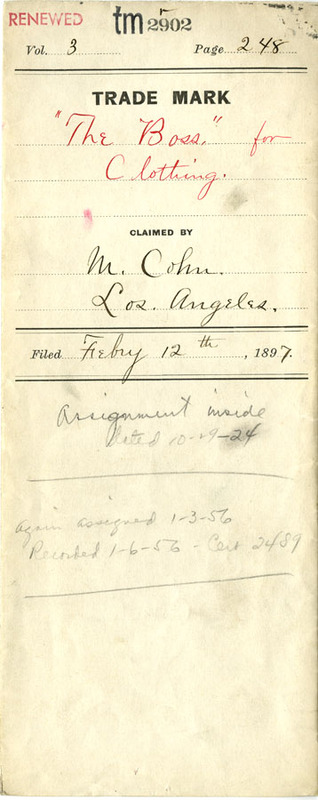 RENEWED
tm 2902
Vol. 3 Page 248
TRADE MARK
"The Boss," for
Clothing.
CLAIMED BY
M. Cohn.
Los. Angeles.
Filed Febry 12th, 1897.
Assignment inside
dated 10-29-24
Again assigned 1-3-56
Recorded 1-6-56 - Cert 2489